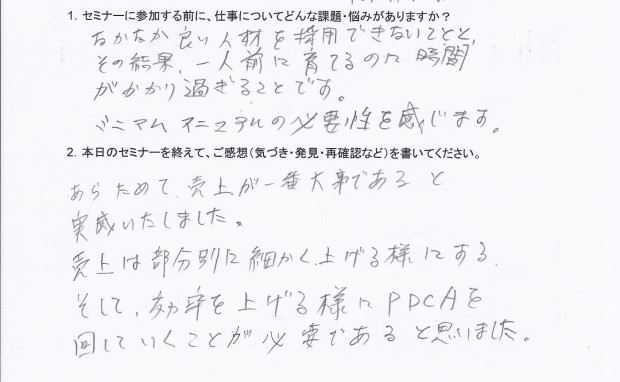 1. セミナーに参加する前に、仕事についてどんな課題・悩みがありますか？
なかなか良い人材を採用できないことと、
その結果、一人前に育てるのに時間
がかかり過ぎることです。
ミニマムマニュアルの必要性を感じます。
2. 本日のセミナーを終えて、ご感想（気づき・発見・再確認など）を書いてください。
あらためて、売上が一番大事であると
実感いたしました。
売上は部分別に細かく上げる様にする。
そして、効率を上げる様にPDCAを
回していくことが必要であると思いました。